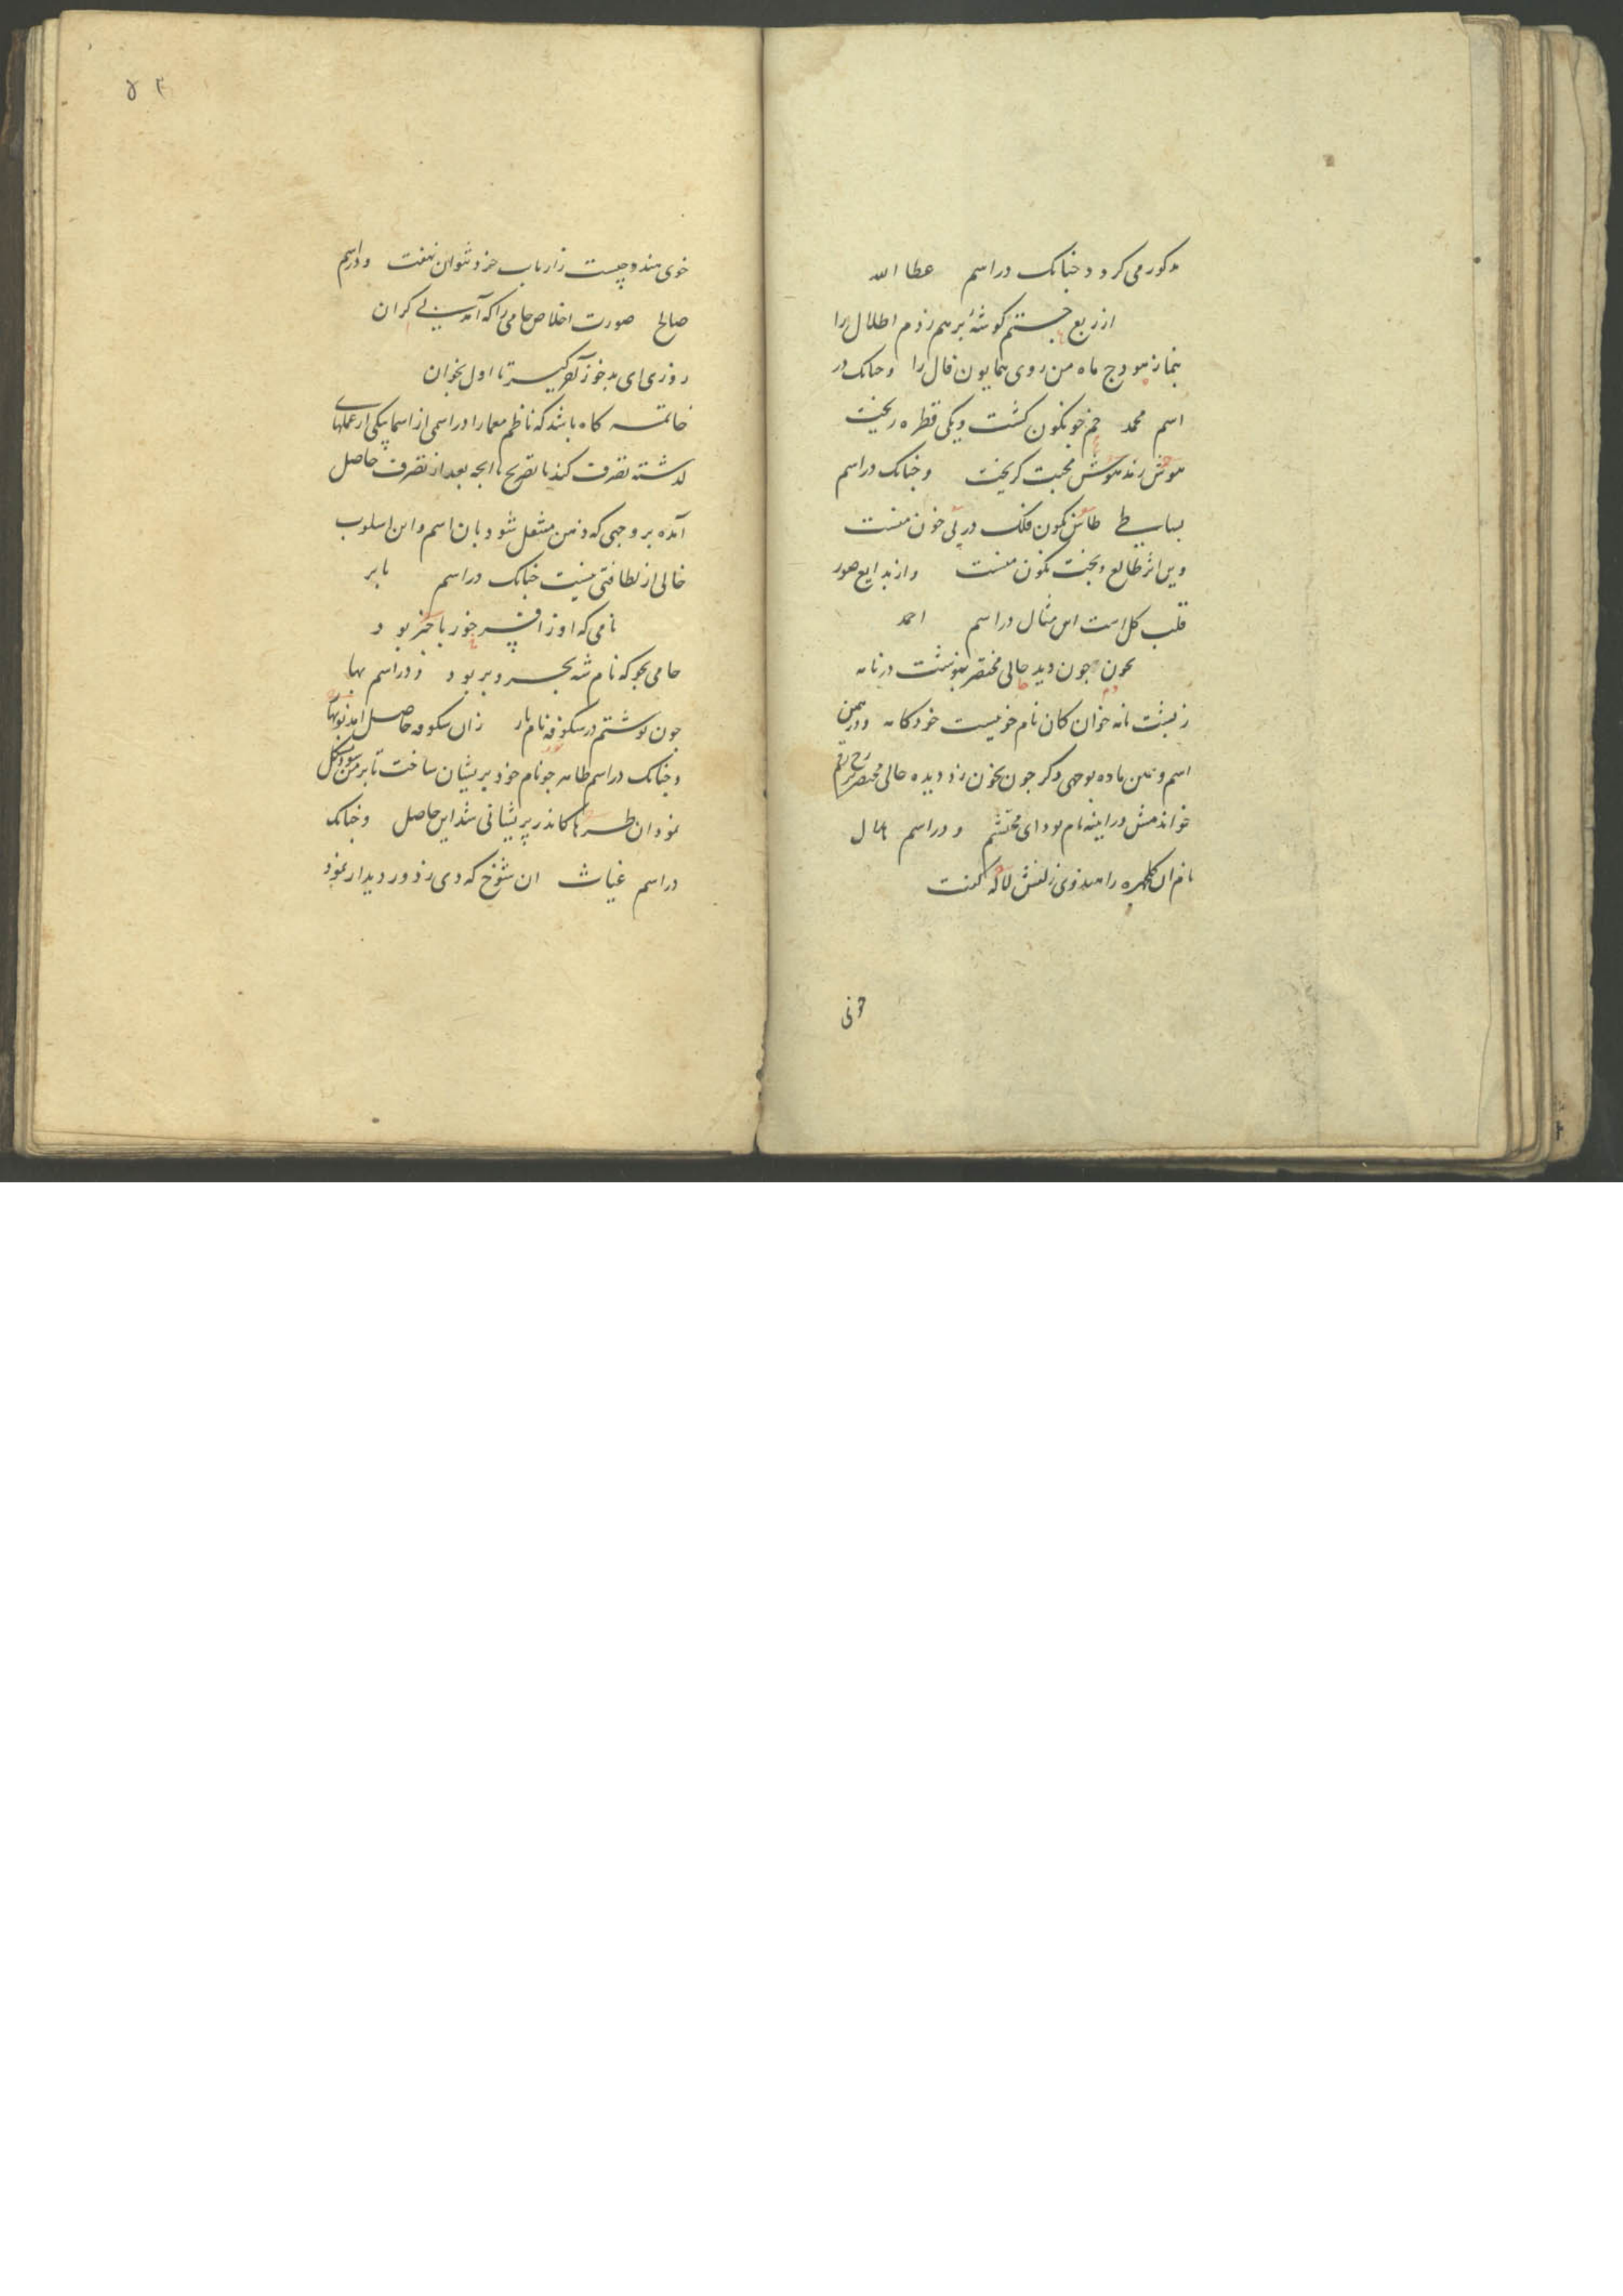 مذکور می کردد چنانک در اسم عطا الله
از ربع جستم کوشهٔ بر هم زدم اطلال را
بنما ز هودج ماه من روی همایون فال را و چنانک در
اسم محمد خم چو نکون کشت و یکی قطره ریخت
هوش ز مدهوش محبت کریخت و چنانک در اسم
بساطی طاس نکون فلک در پی خون منست
وین اثر طالع و بخت نکون منست و از بدایع صور
قلب کل است این مثال در اسم احمد
چون دید حالی مختصر بنوشت در نامه
ز پشت نامه خوان کان نام خود کامه و در همین
اسم و عین ماده بوجهی دکر چون بخون زد دیده حالی مختصر
خواندمش در اینه نام بود ای محتشم و در اسم
نام ان کلچهره را هندوی زلفش لاله کفت
خوی
۵۴
خوی هندو چیست ز ارباب خرد نتوان نهفت و در اسم
صالح صورت اخلاص جامی را که آمد بی کران
روزی ای مه جو ز آخر کیر تا اول بخوان
خاتمه کاه باشد که ناظم معما را در اسمی از اسما بیکی از عملهای
کذشته تصرف کند با تصریح بانچه بعد از تصرف حاصل
آمده بر وجهی که ذهن منتقل شود بان اسم و این اسلوب
خالی از لطافتی نیست چنانک در اسم بابر
نامی که او ز افسر خور با خبر بود
جامی بجو که نام شه بحر و بر بود و در اسم بها
چون نوشتم در شکوفه نام یار زان شکوفه حاصل امد نوبهار
و چنانک در اسم طاهر چو نام خود پریشان ساخت تا بر من شود مشکل
نمود ان طره ها کاندر پریشانی شد این حاصل و چنانک
در اسم غیاث ان شوخ که دی ز دور دیدار نمود